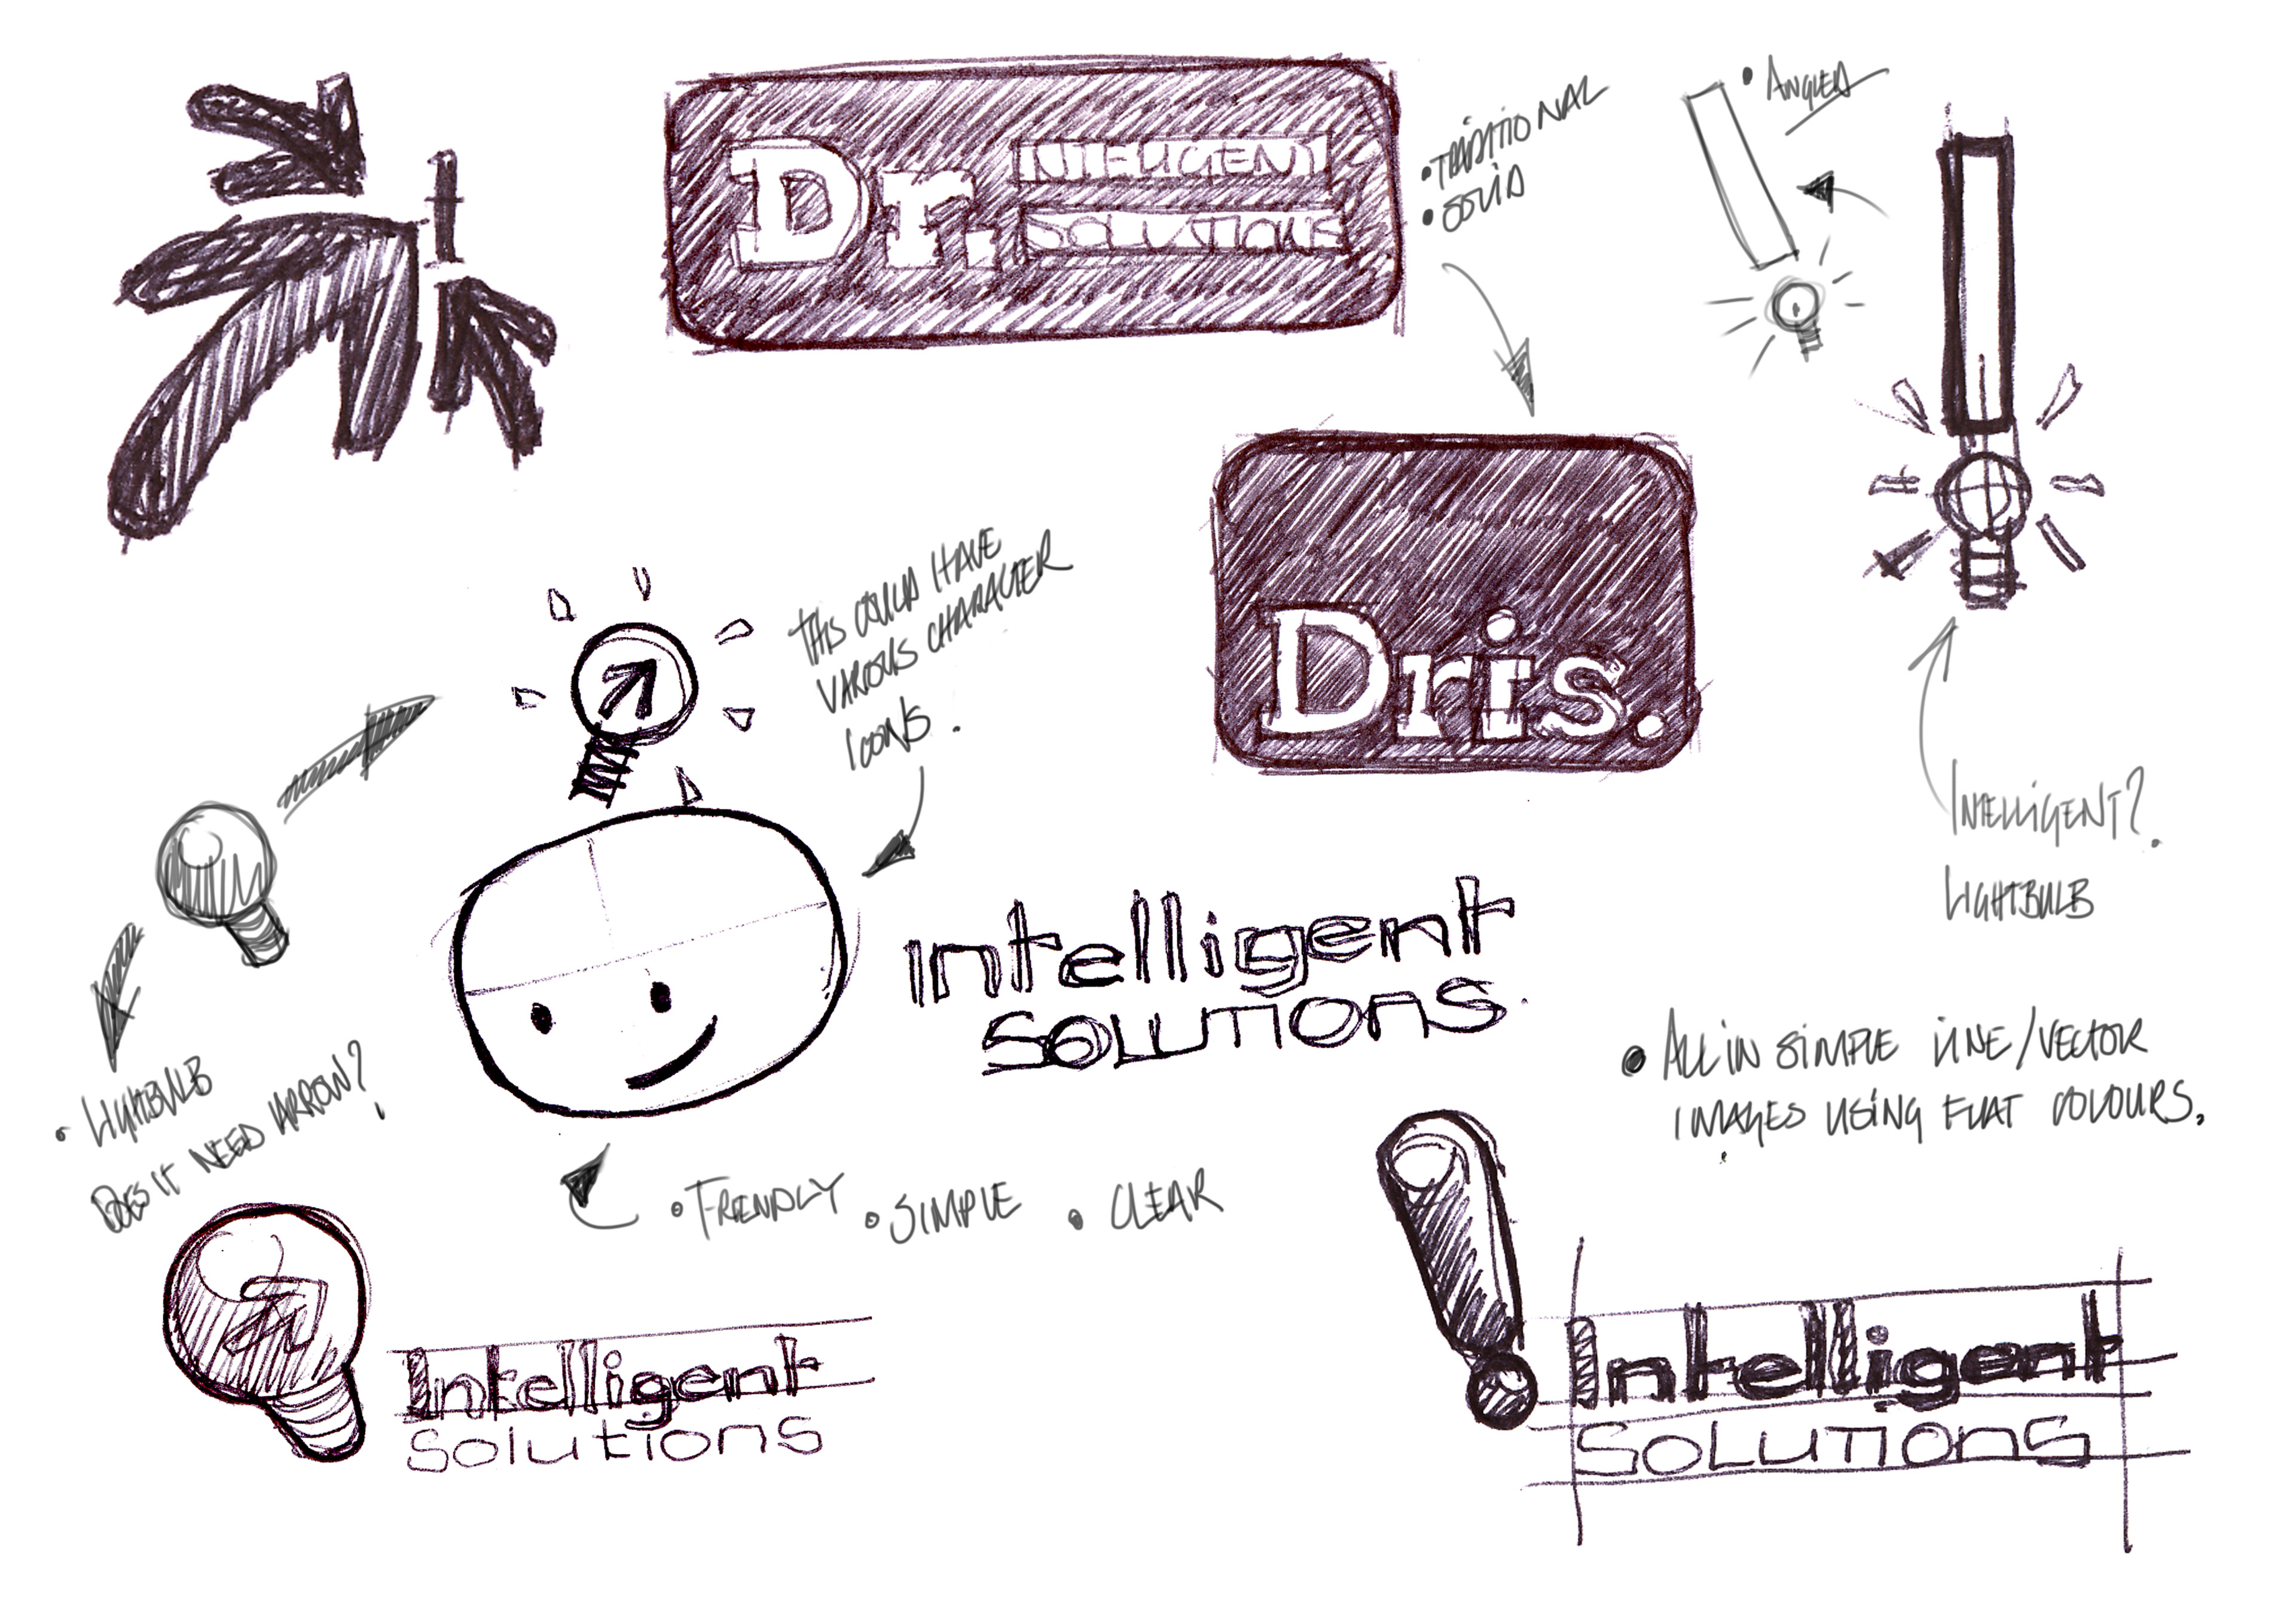 Dr. INTELIGENT
SOLUTIONS
• TRADITIONAL
• SOLID
• ANGLED
Dris.
THIS COULD HAVE
VARIOUS CHARACTER
ICONS.
INTELLIGENT?
LIGHTBULB
Intelligent
SOLUTIONS.
• LIGHTBULB
DOES IT NEED ARROW?
• FRIENDLY • SIMPLE • CLEAR
• ALL IN SIMPLE LINE/VECTOR
IMAGES USING FLAT COLOURS.
Intelligent
Solutions
Intelligent
SOLUTIONS